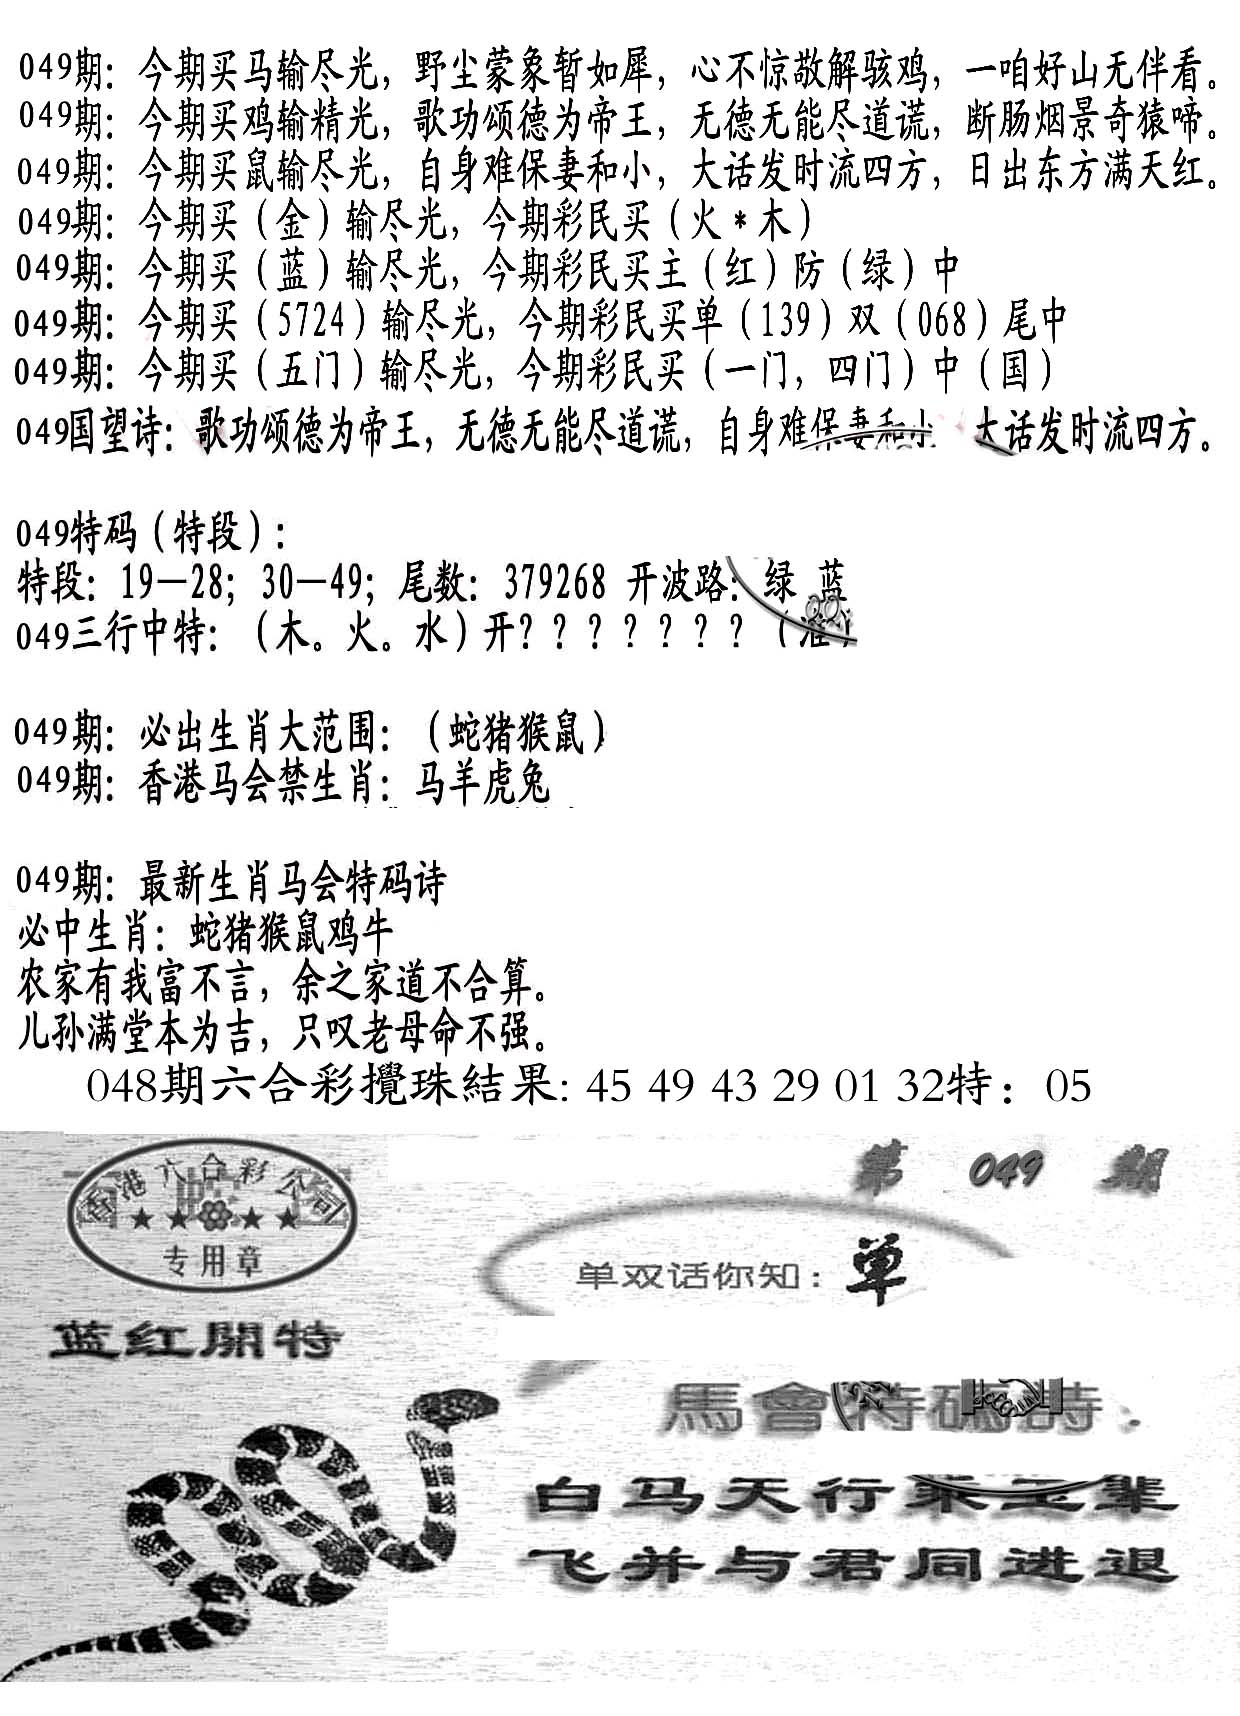 049期：今期买马输尽光，野尘蒙象暂如犀，心不惊敌解骇鸡，一咱好山无伴看。
049期：今期买鸡输精光，歌功颂德为帝王，无德无能尽道谎，断肠烟景奇猿啼。
049期：今期买鼠输尽光，自身难保妻和小，大话发时流四方，日出东方满天红。
049期：今期买（金）输尽光，今期彩民买（火*木）
049期：今期买（蓝）输尽光，今期彩民买主（红）防（绿）中
049期：今期买（5724）输尽光，今期彩民买单（139）双（068）尾中
049期：今期买（五门）输尽光，今期彩民买（一门，四门）中（国）
049国望诗：歌功颂德为帝王，无德无能尽道谎，自身难保妻和小 大话发时流四方。
049特码（特段）：
特段：19—28；30—49；尾数：379268 开波路：绿 蓝
049三行中特：（木。火。水）开？？？？？？？（准）
049期：必出生肖大范围：（蛇猪猴鼠）
049期：香港马会禁生肖：马羊虎兔
049期：最新生肖马会特码诗
必中生肖：蛇猪猴鼠鸡牛
农家有我富不言，余之家道不合算。
儿孙满堂本为吉，只叹老母命不强。
048期六合彩攪珠結果: 45 49 43 29 01 32特：05
香港六合彩公司
★★★★
专用章
第 049 期
单双话你知：单
蓝红開特
馬會特碼詩：
白马天行乘玉辇
飞并与君同进退